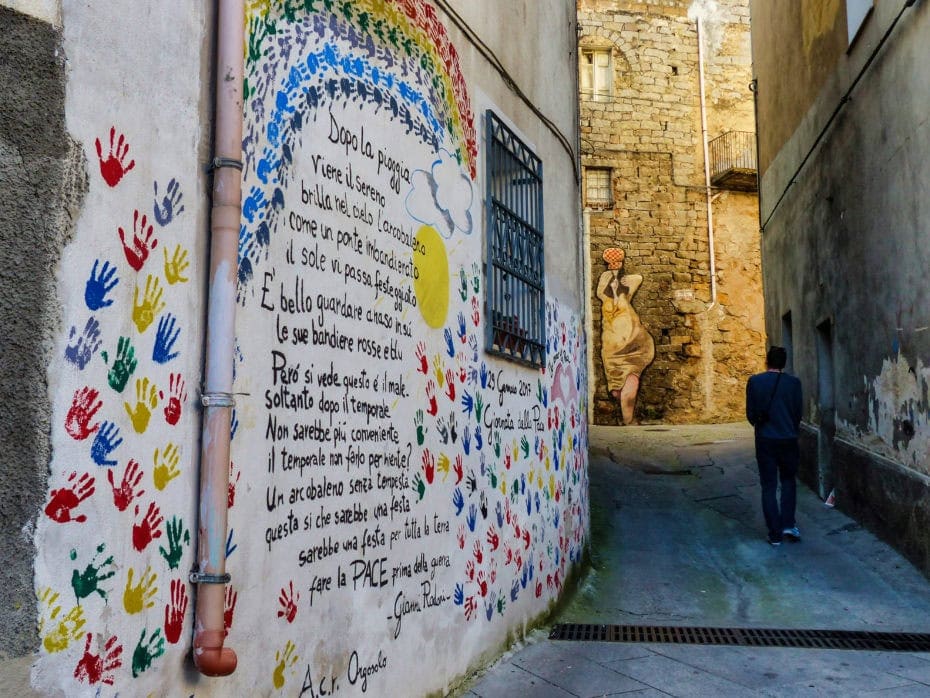 Dopo la pioggia
viene il sereno
brilla nel cielo l'arcobaleno
come un ponte imbandierato
il sole vi passa festeggiato
E' bello guardare a naso in sú
le sue bandiere rosse e blu
Peró si vede questo é il male
soltanto dopo il temporale
Non sarebbe più conveniente
il temporale non farlo per niente?
Un arcobaleno senza tempesta
questa si che sarebbe una festa
sarebbe una festa per tutta la terra
fare la PACE prima della guerra
- Gianni Rodari -
A.c.r. Orgosolo
29 Gennaio 2017
Giornata della Pace